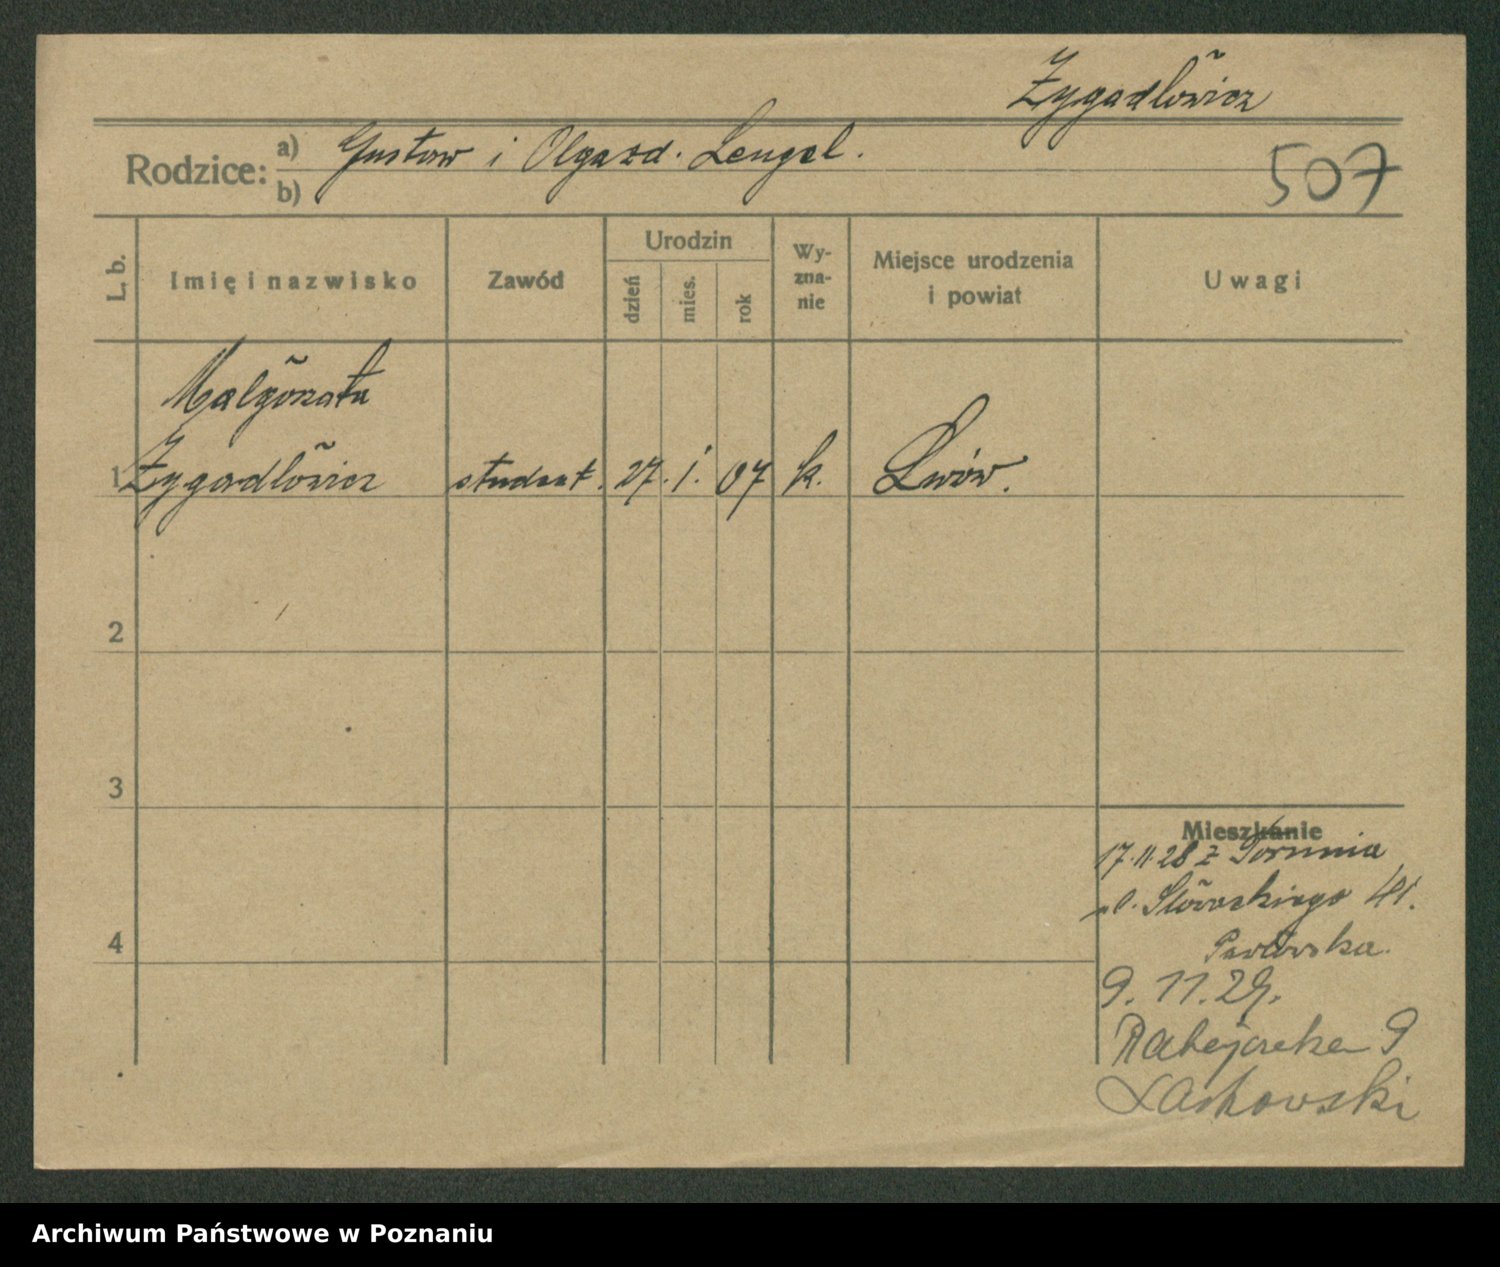 Zygadlõwicz
Rodzice: a) Gustaw i Olga zd. Lengel.
b)
507
L. b. Imię i nazwisko Zawód Urodzin dzień mies. rok Wyzna-nie Miejsce urodzenia i powiat Uwagi
Malgõrzata
1 Zygadlõwicz student. 27. 1. 07 k. Lwów.
2
3
Mieszkanie
17.11.28 z Torunia
ul. Slõwackiego 41.
4
9. 11. 29.
9
Archiwum Państwowe w Poznaniu